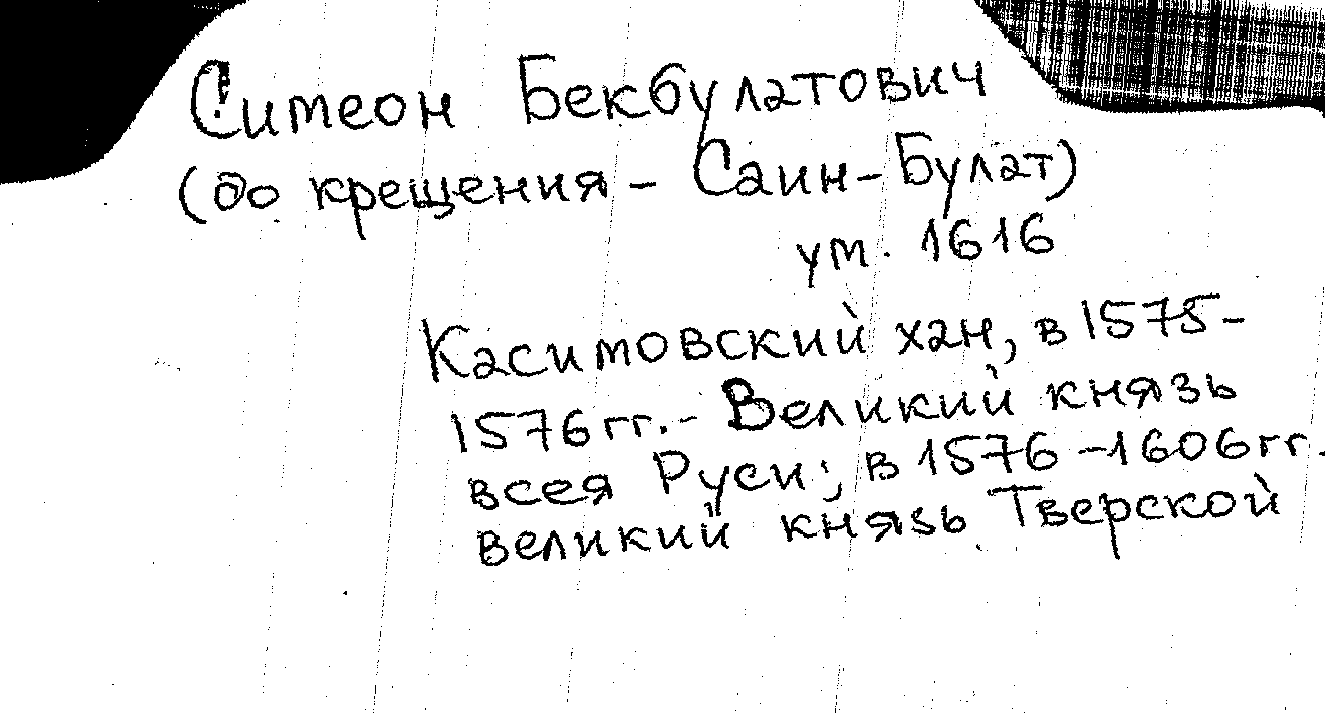 Симеон Бекбулатович
(до крещения – Саин-Булат)
ум. 1616
Касимовский хан, в 1575-
1576 гг. - Великий князь
всея Руси; в 1576 -1606 гг.
великий князь Тверской